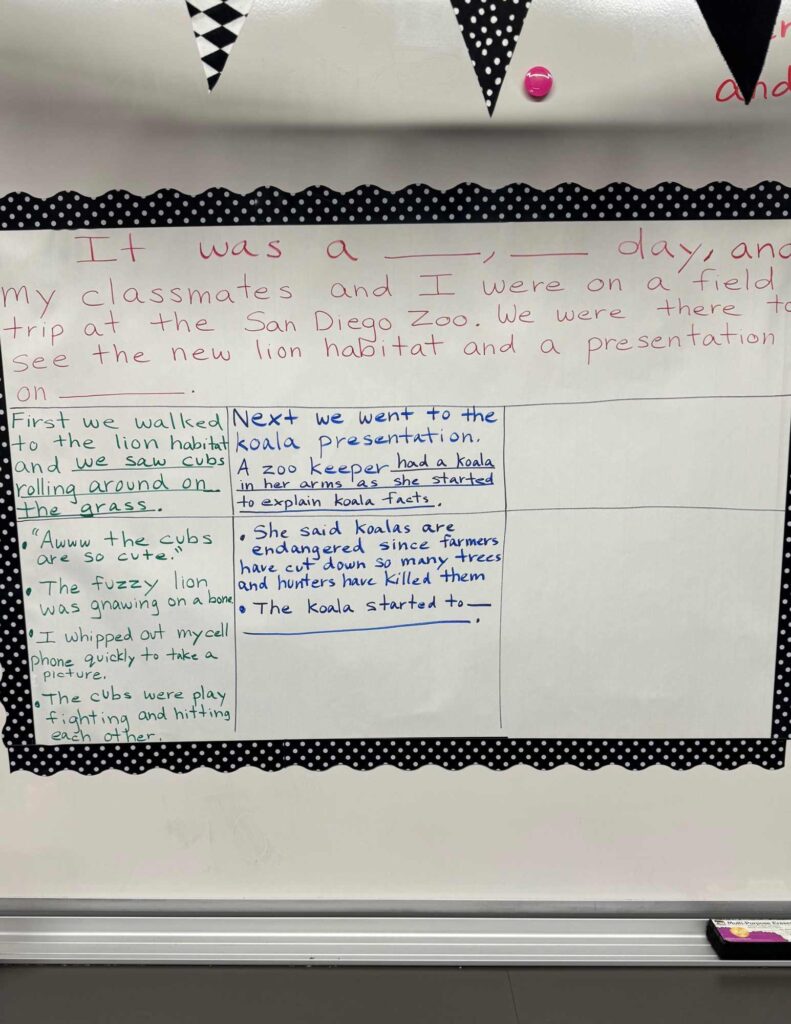 and
It was a ____, ____ day, and
my classmates and I were on a field
trip at the San Diego Zoo. We were there to
see the new lion habitat and a presentation
on ________.
First we walked
to the lion habitat
and we saw cubs
rolling around on
the grass.
• "Awww the cubs
are so cute."
• The fuzzy lion
was gnawing on a bone
• I whipped out my cell
phone quickly to take a
picture.
• The cubs were play
fighting and hitting
each other.
Next we went to the
koala presentation.
A zoo keeper had a koala
in her arms as she started
to explain koala facts.
• She said koalas are
endangered since farmers
have cut down so many trees
and hunters have killed them
• The koala started to __
________.
Multi-Purpose Eraser